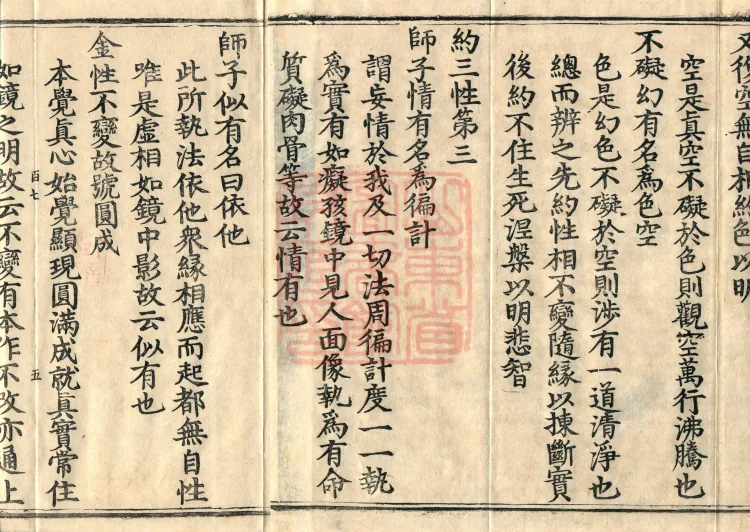 又作空無自相約色以明
空是眞空不礙於色則觀空萬行沸騰也
不礙幻有名爲色空
色是幻色不礙於空則涉有一道清淨也
總而辨之先約性相不變隨緣以揀斷實
後約不住生死涅槃以明悲智
約三性第三
師子情有名爲徧計
謂妄情於我及一切法周徧計度一一執
爲實有如癡孩鏡中見人面像執爲有命
質礙肉骨等故云情有也
師子似有名曰依他
此所執法依他衆緣相應而起都無自性
唯是虛相如鏡中影故云似有也
金性不變故號圓成
本覺眞心始覺顯現圓滿成就眞實常住
百七
五
如鏡之明故云不變有本作不改亦通上